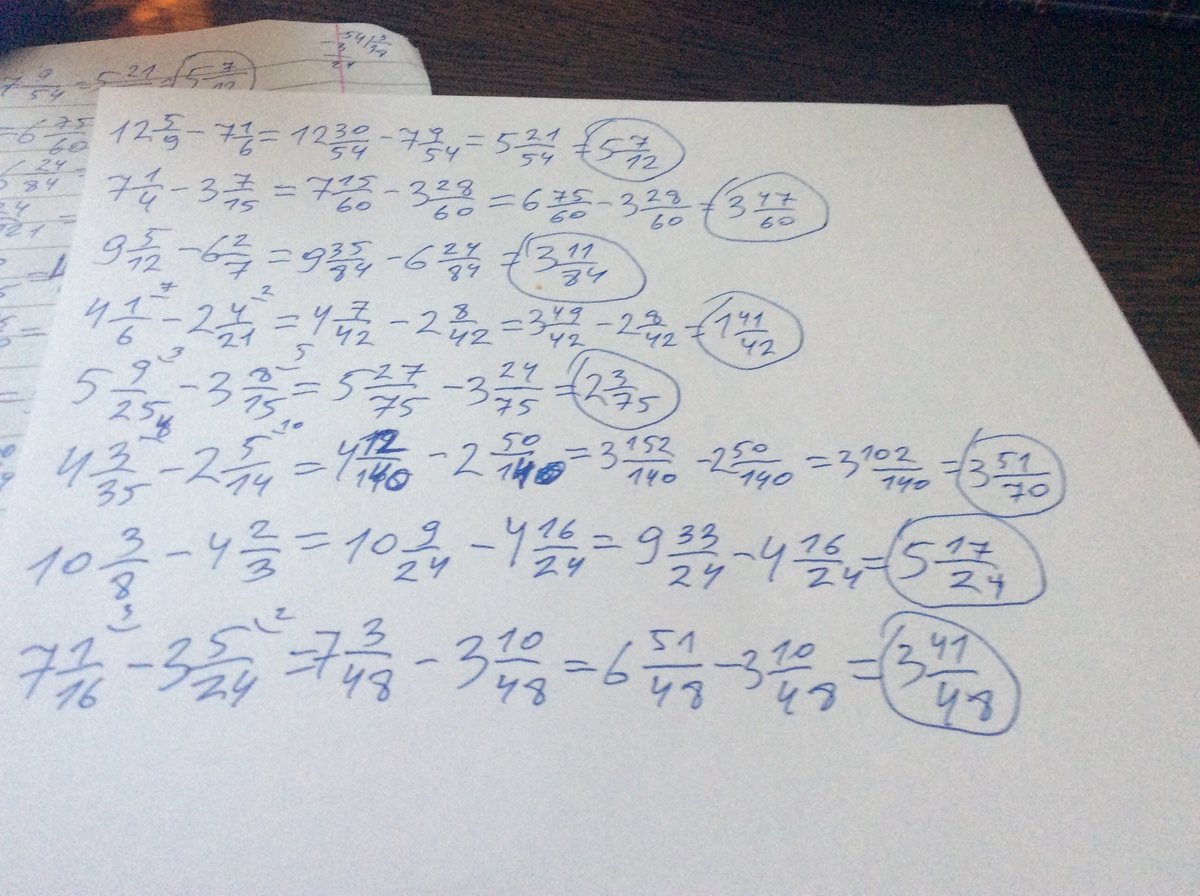 54 | 3
- 3
24
7 9/54 = 5 21 = 5 7/12
= 6 75/60
24/84
12 5/9 - 7 1/6 = 12 30/54 - 7 9/54 = 5 21/54 = 5 7/12
7 1/4 - 3 7/15 = 7 15/60 - 3 28/60 = 6 75/60 - 3 28/60 = 3 47/60
9 5/12 - 6 2/7 = 9 35/84 - 6 24/84 = 3 11/84
4 1/6 ⁷ - 2 4/21 ² = 4 7/42 - 2 8/42 = 3 49/42 - 2 8/42 = 1 41/42
5 9/25 ³ - 3 8/15 ⁵ = 5 27/75 - 3 24/75 = 2 3/75
4 3/35 ⁴ - 2 5/14 ¹⁰ = 4 12/140 - 2 50/140 = 3 152/140 - 2 50/140 = 3 102/140 = 3 51/70
10 3/8 - 4 2/3 = 10 9/24 - 4 16/24 = 9 33/24 - 4 16/24 = 5 17/24
7 1/16 ³ - 3 5/24 ² = 7 3/48 - 3 10/48 = 6 51/48 - 3 10/48 = 3 41/48